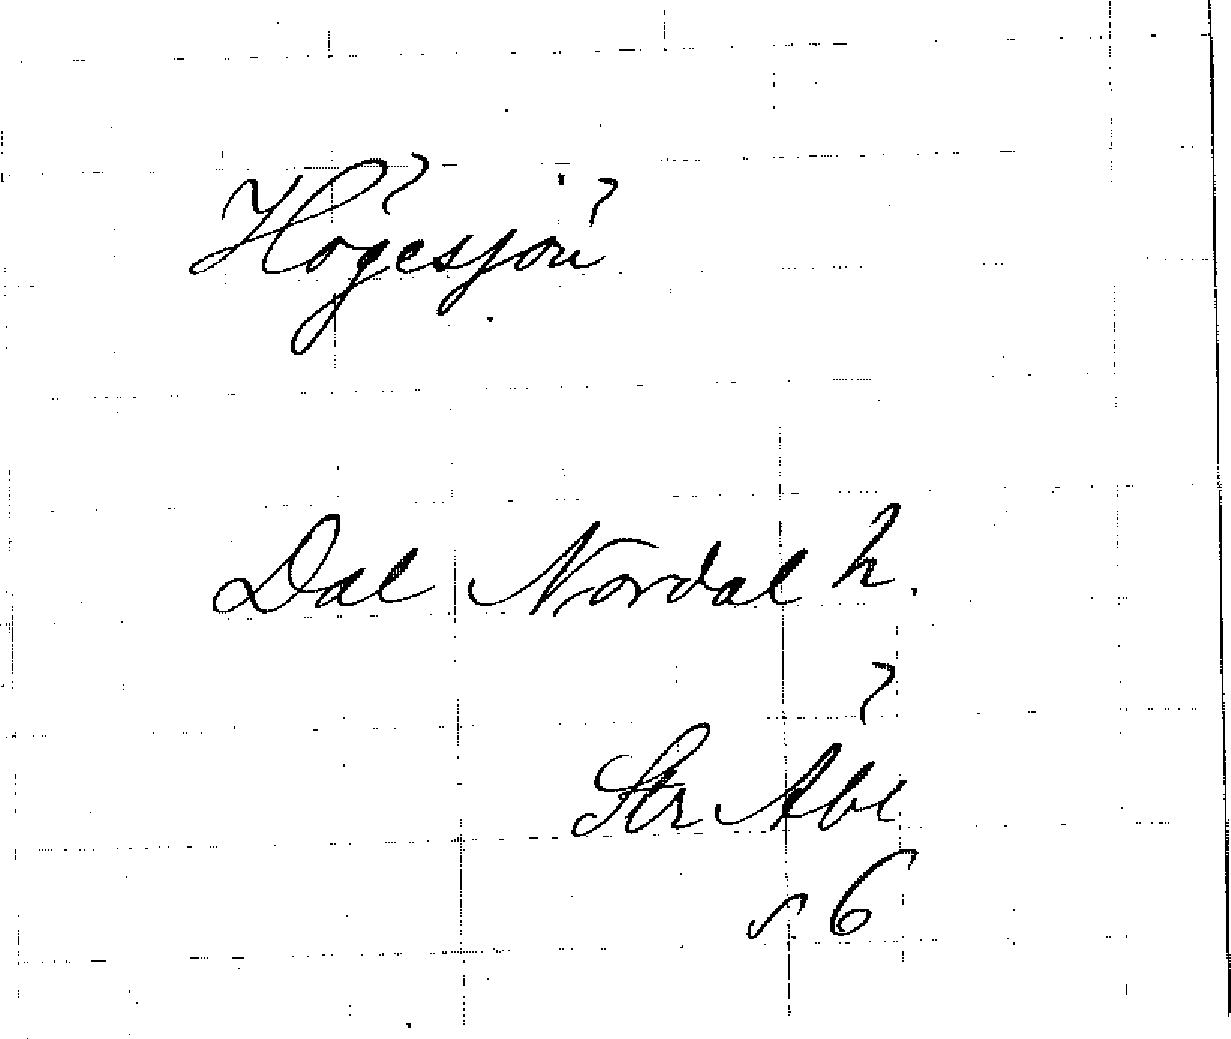 Högesjön
Dal Nordal h.
Str
s 6